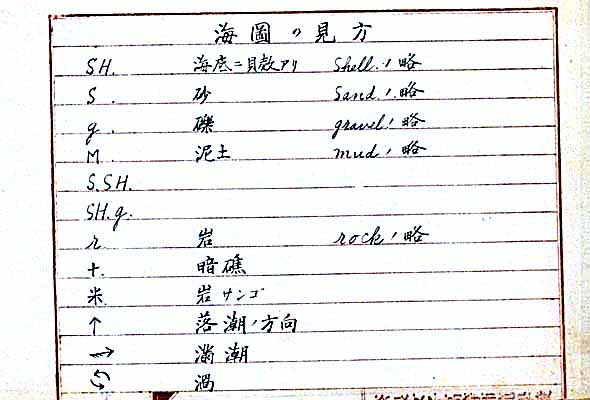 海圖ノ見方
SH. 海底ニ貝殻アリ Shell ノ略
S. 砂 Sand ノ略
g. 礫 gravel ノ略
M. 泥土 mud ノ略
S.SH.
SH.g.
r 岩 rock ノ略
+. 暗礁
米. 岩サンゴ
↑ 落潮ノ方向
→ 満潮
渦